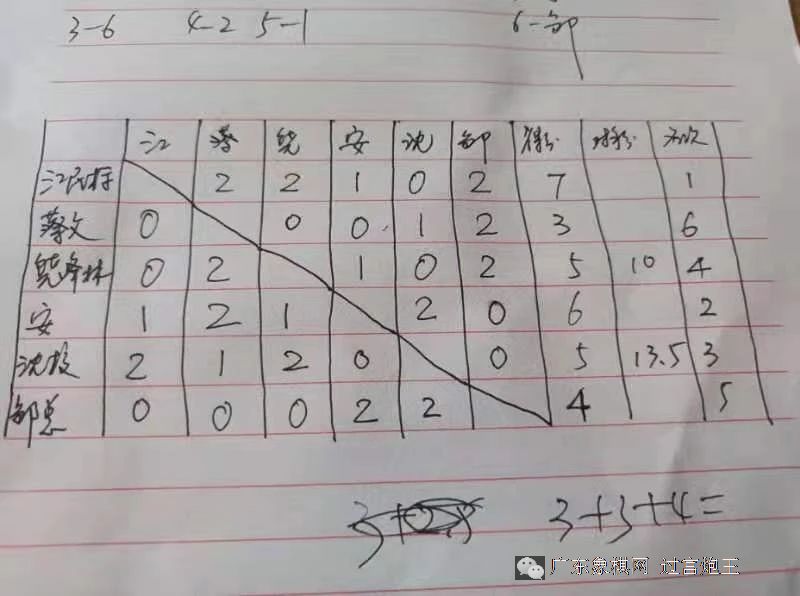 3-6 4-2 5-1 6-邹
江 蔡 熊 安 沈 邹 得分 对手分 名次
江民标 2 2 1 0 2 7 1
蔡文 0 0 0 1 2 3 6
熊峰林 0 2 1 0 2 5 10 4
安 1 2 1 2 0 6 2
沈 2 1 2 0 0 5 13.5 3
总 0 0 0 2 2 4 5
3+3+4=
广东象棋网 过宫炮王